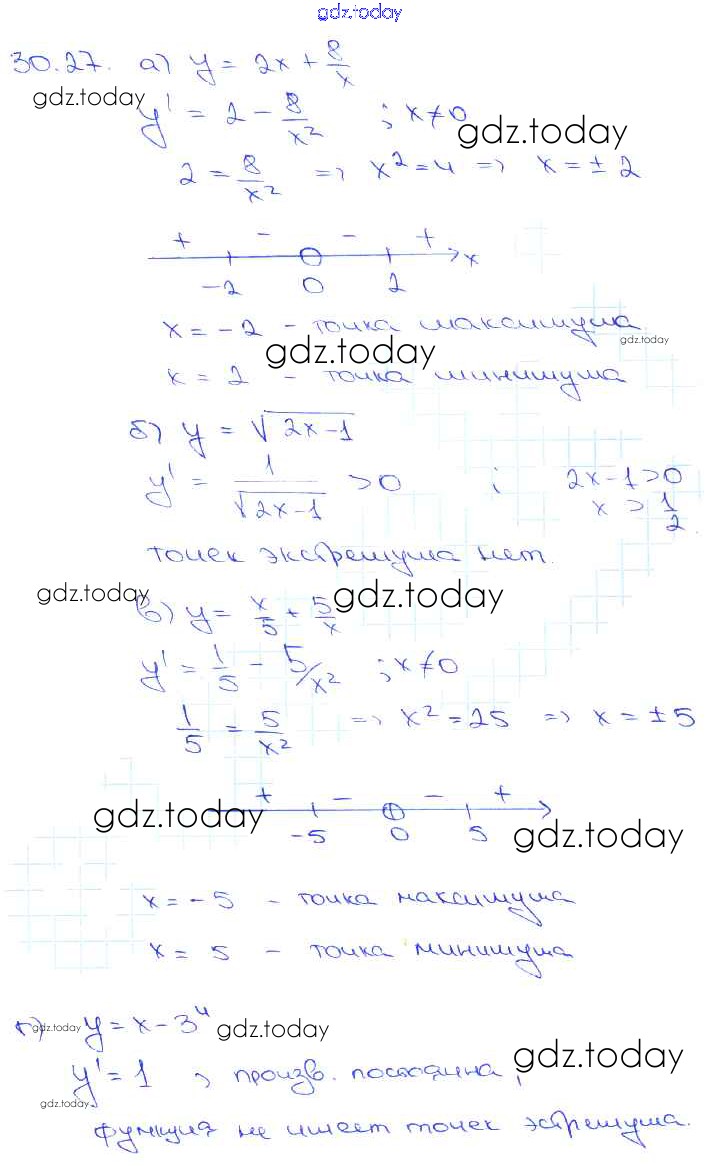 gdz.today
30.27. а) y = 2x + 8/x
gdz.today
y' = 2 - 8/x² ; x ≠ 0
gdz.today
2 = 8/x² => x² = 4 => x = ± 2
+ - - + x
-2 0 2
x = -2 - точка максимума
gdz.today gdz.today
x = 2 - точка минимума
б) y = √(2x-1)
y' = 1/√(2x-1) > 0 ; 2x-1>0
x > 1/2
точек экстремума нет.
gdz.today gdz.today
в) y = x/5 + 5/x
y' = 1/5 - 5/x² ; x ≠ 0
1/5 = 5/x² => x² = 25 => x = ±5
+ - - +
gdz.today
-5 0 5
gdz.today
x = -5 - точка максимума
x = 5 - точка минимума
г) gdz.today y = x - 3⁴ gdz.today
gdz.today
y' = 1 , произв. постоянна,
gdz.today
функция не имеет точек эстремума.